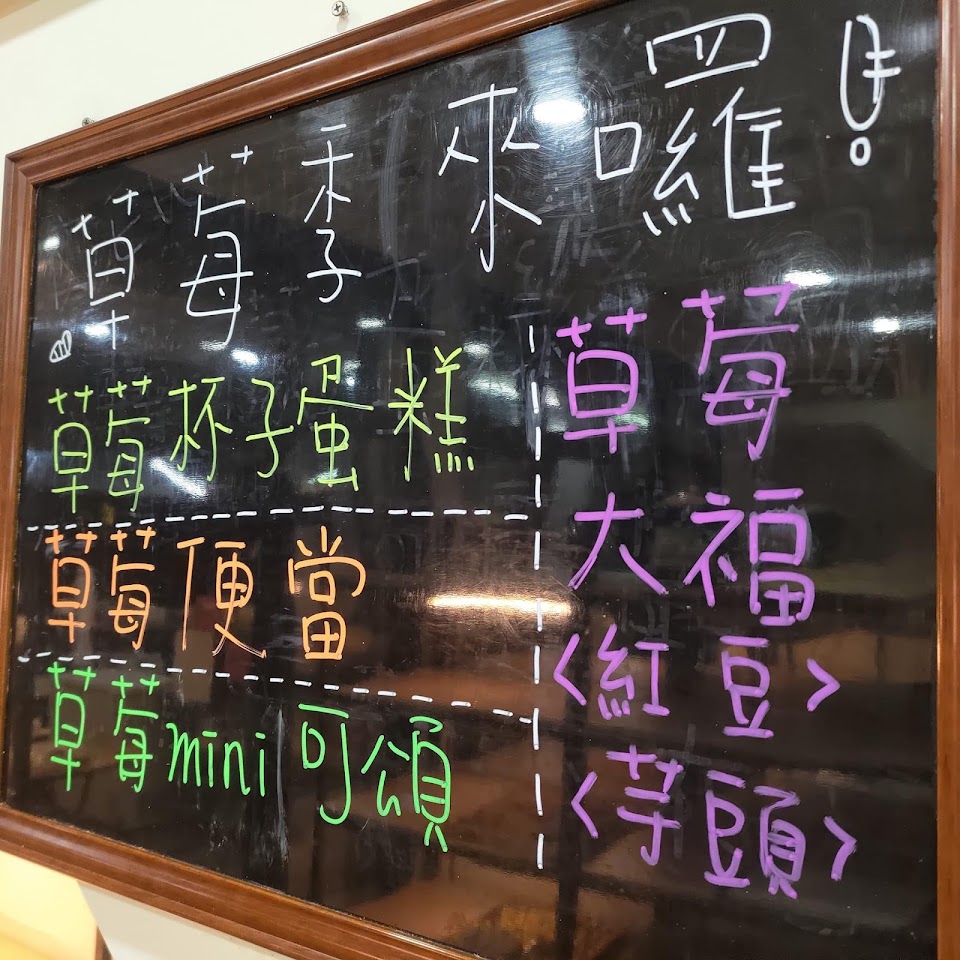 草莓季來囉!
草莓杯子蛋糕
草莓便當
草莓mini可頌
草莓
大福
<紅豆>
<芋頭>